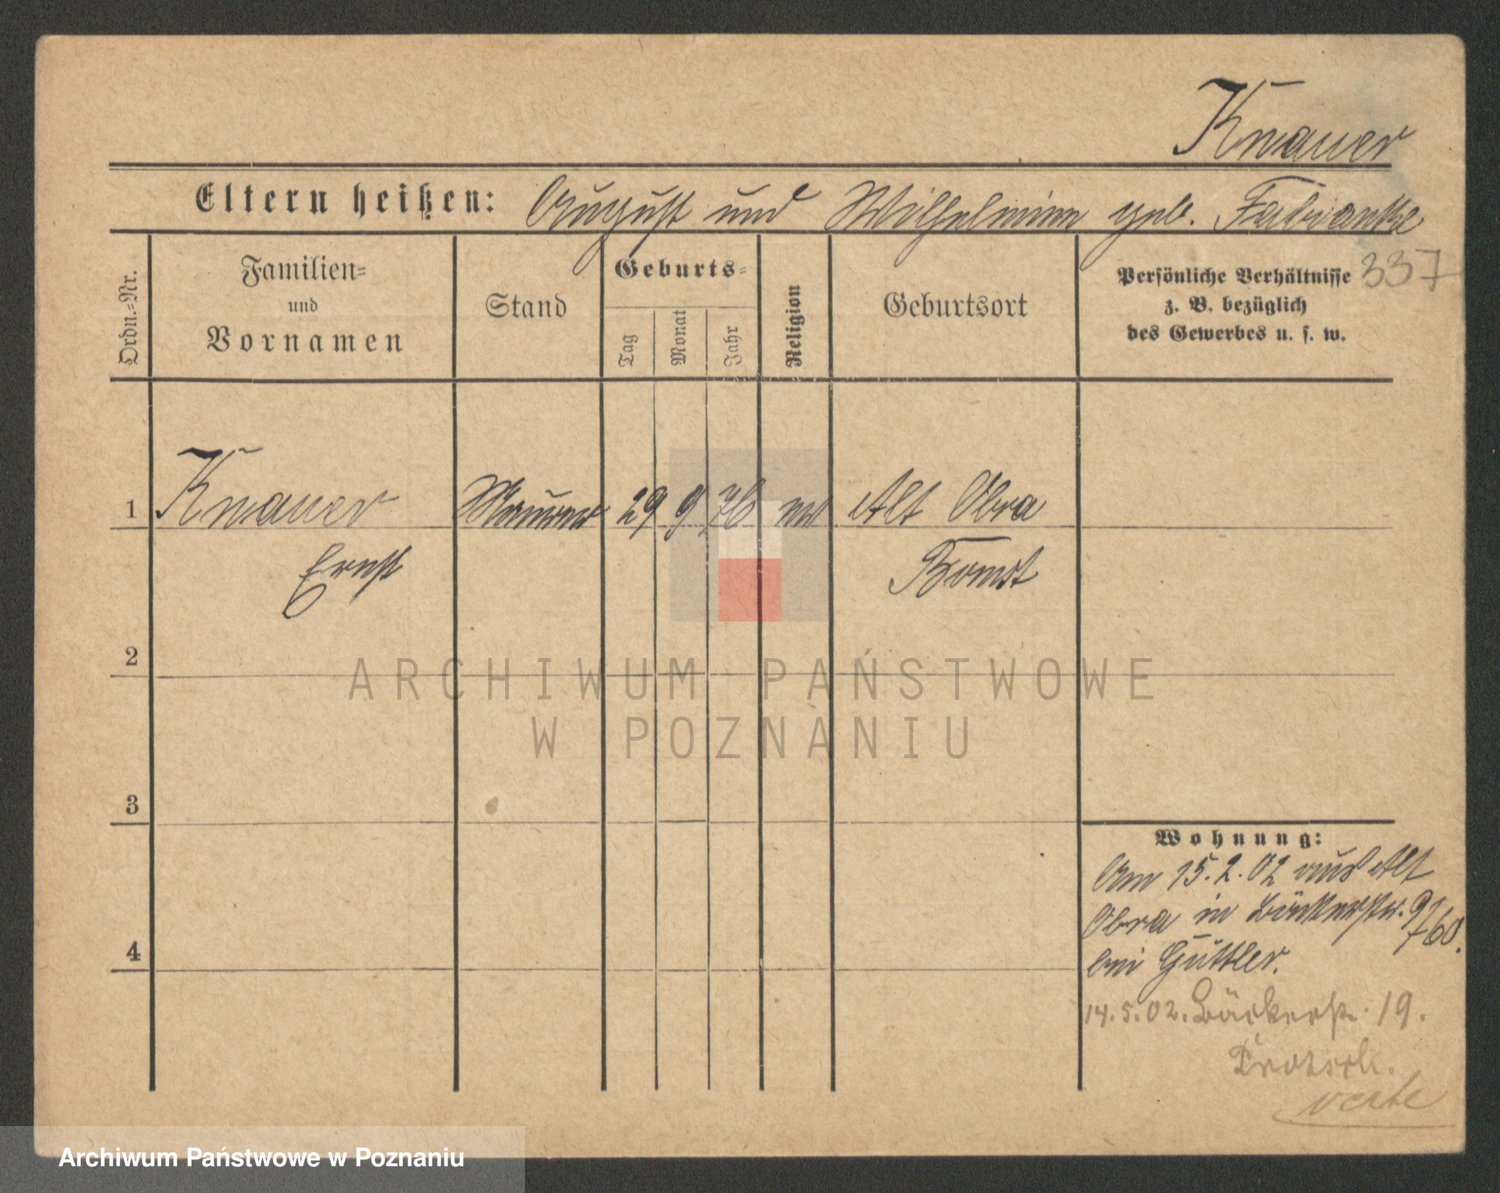 Knauer
Eltern heißen: August und Wilhelmine geb. Fabianke
337
Ordn.-Nr.
Familien-
und
Vornamen
Stand
Geburts-
Tag
Monat
Jahr
Religion
Geburtsort
Persönliche Verhältnisse
z. B. bezüglich
des Gewerbes u. s. w.
1 Knauer Maurer 29 9 76 ev Alt Obra
Ernst Bomst
2
3
4
Wohnung:
Am 15.2.02 aus Alt
Obra in Bäckerstr. 9/60.
bei Güttler.
14.5.02. Bäckerstr. 19.
verte
ARCHIWUM PAŃSTWOWE
W POZNANIU
Archiwum Państwowe w Poznaniu